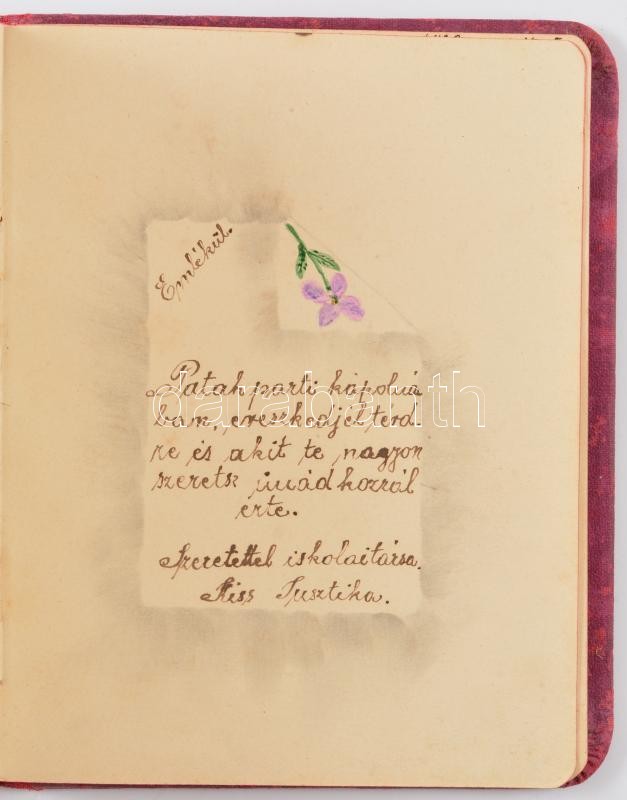 Emlékül.
Patak parti kápolná
ban, ereszkedjél térd
re és akit te nagyon
szeretsz imádkozzál
érte.
Szeretettel iskolaitársa.
Kiss Jusztika.
darabanth